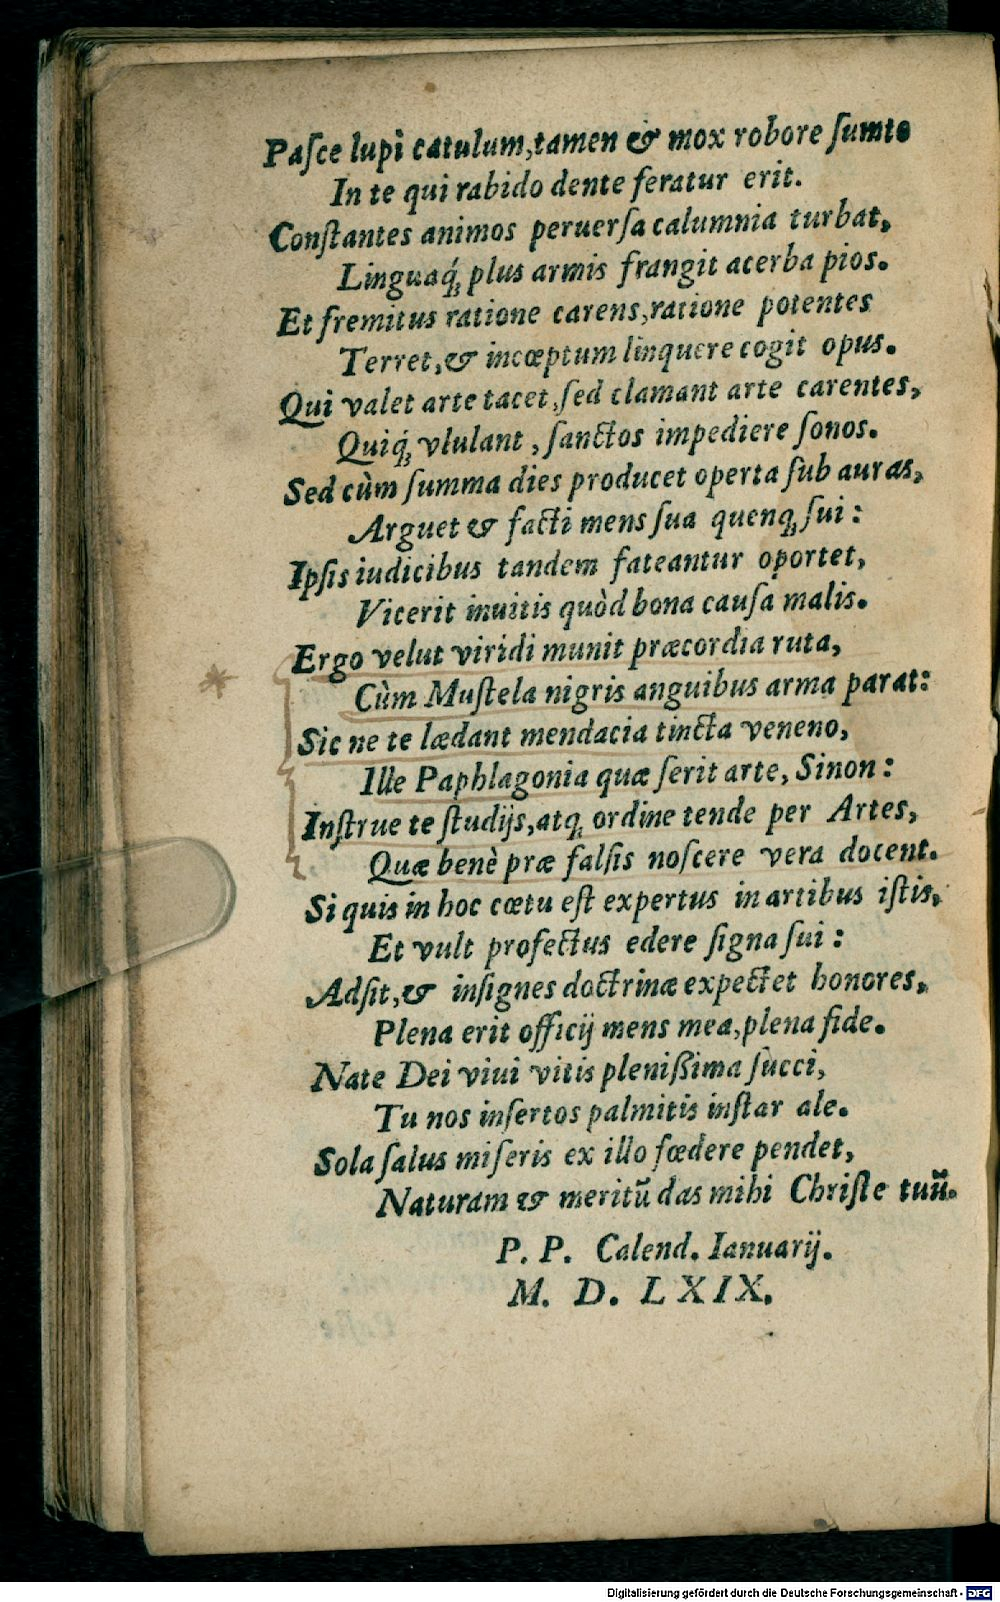 Paſce lupi catulum, tamen & mox robore ſumto
In te qui rabido dente feratur erit.
Conſtantes animos peruerſa calumnia turbat,
Linguaq́ꝫ plus armis frangit acerba pios.
Et fremitus ratione carens, ratione potentes
Terret, & incœptum linquere cogit opus.
Qui valet arte tacet, ſed clamant arte carentes,
Quiq́ꝫ vlulant, ſanctos impediere ſonos.
Sed cùm ſumma dies producet operta ſub auras,
Arguet & facti mens ſua quenqꝫ ſui:
Ipſis iudicibus tandem fateantur oportet,
Vicerit inuitis quòd bona cauſa malis.
Ergo velut viridi munit præcordia ruta,
Cùm Muſtela nigris anguibus arma parat:
Sic ne te lædant mendacia tincta veneno,
Ille Paphlagonia quæ ſerit arte, Sinon:
Inſtrue te ſtudijs, atqꝫ ordine tende per Artes,
Quæ benè præ falſis noſcere vera docent.
Si quis in hoc cœtu eſt expertus in artibus iſtis,
Et vult profectus edere ſigna ſui:
Adſit, & inſignes doctrinæ expectet honores,
Plena erit officij mens mea, plena fide.
Nate Dei viui vitis pleniſsima ſucci,
Tu nos inſertos palmitis inſtar ale.
Sola ſalus miſeris ex illo fœdere pendet,
Naturam & meritū das mihi Chriſte tuū.
P. P. Calend. Ianuarij.
M. D. LXIX.
Digitalisierung gefördert durch die Deutsche Forschungsgemeinschaft - DFG